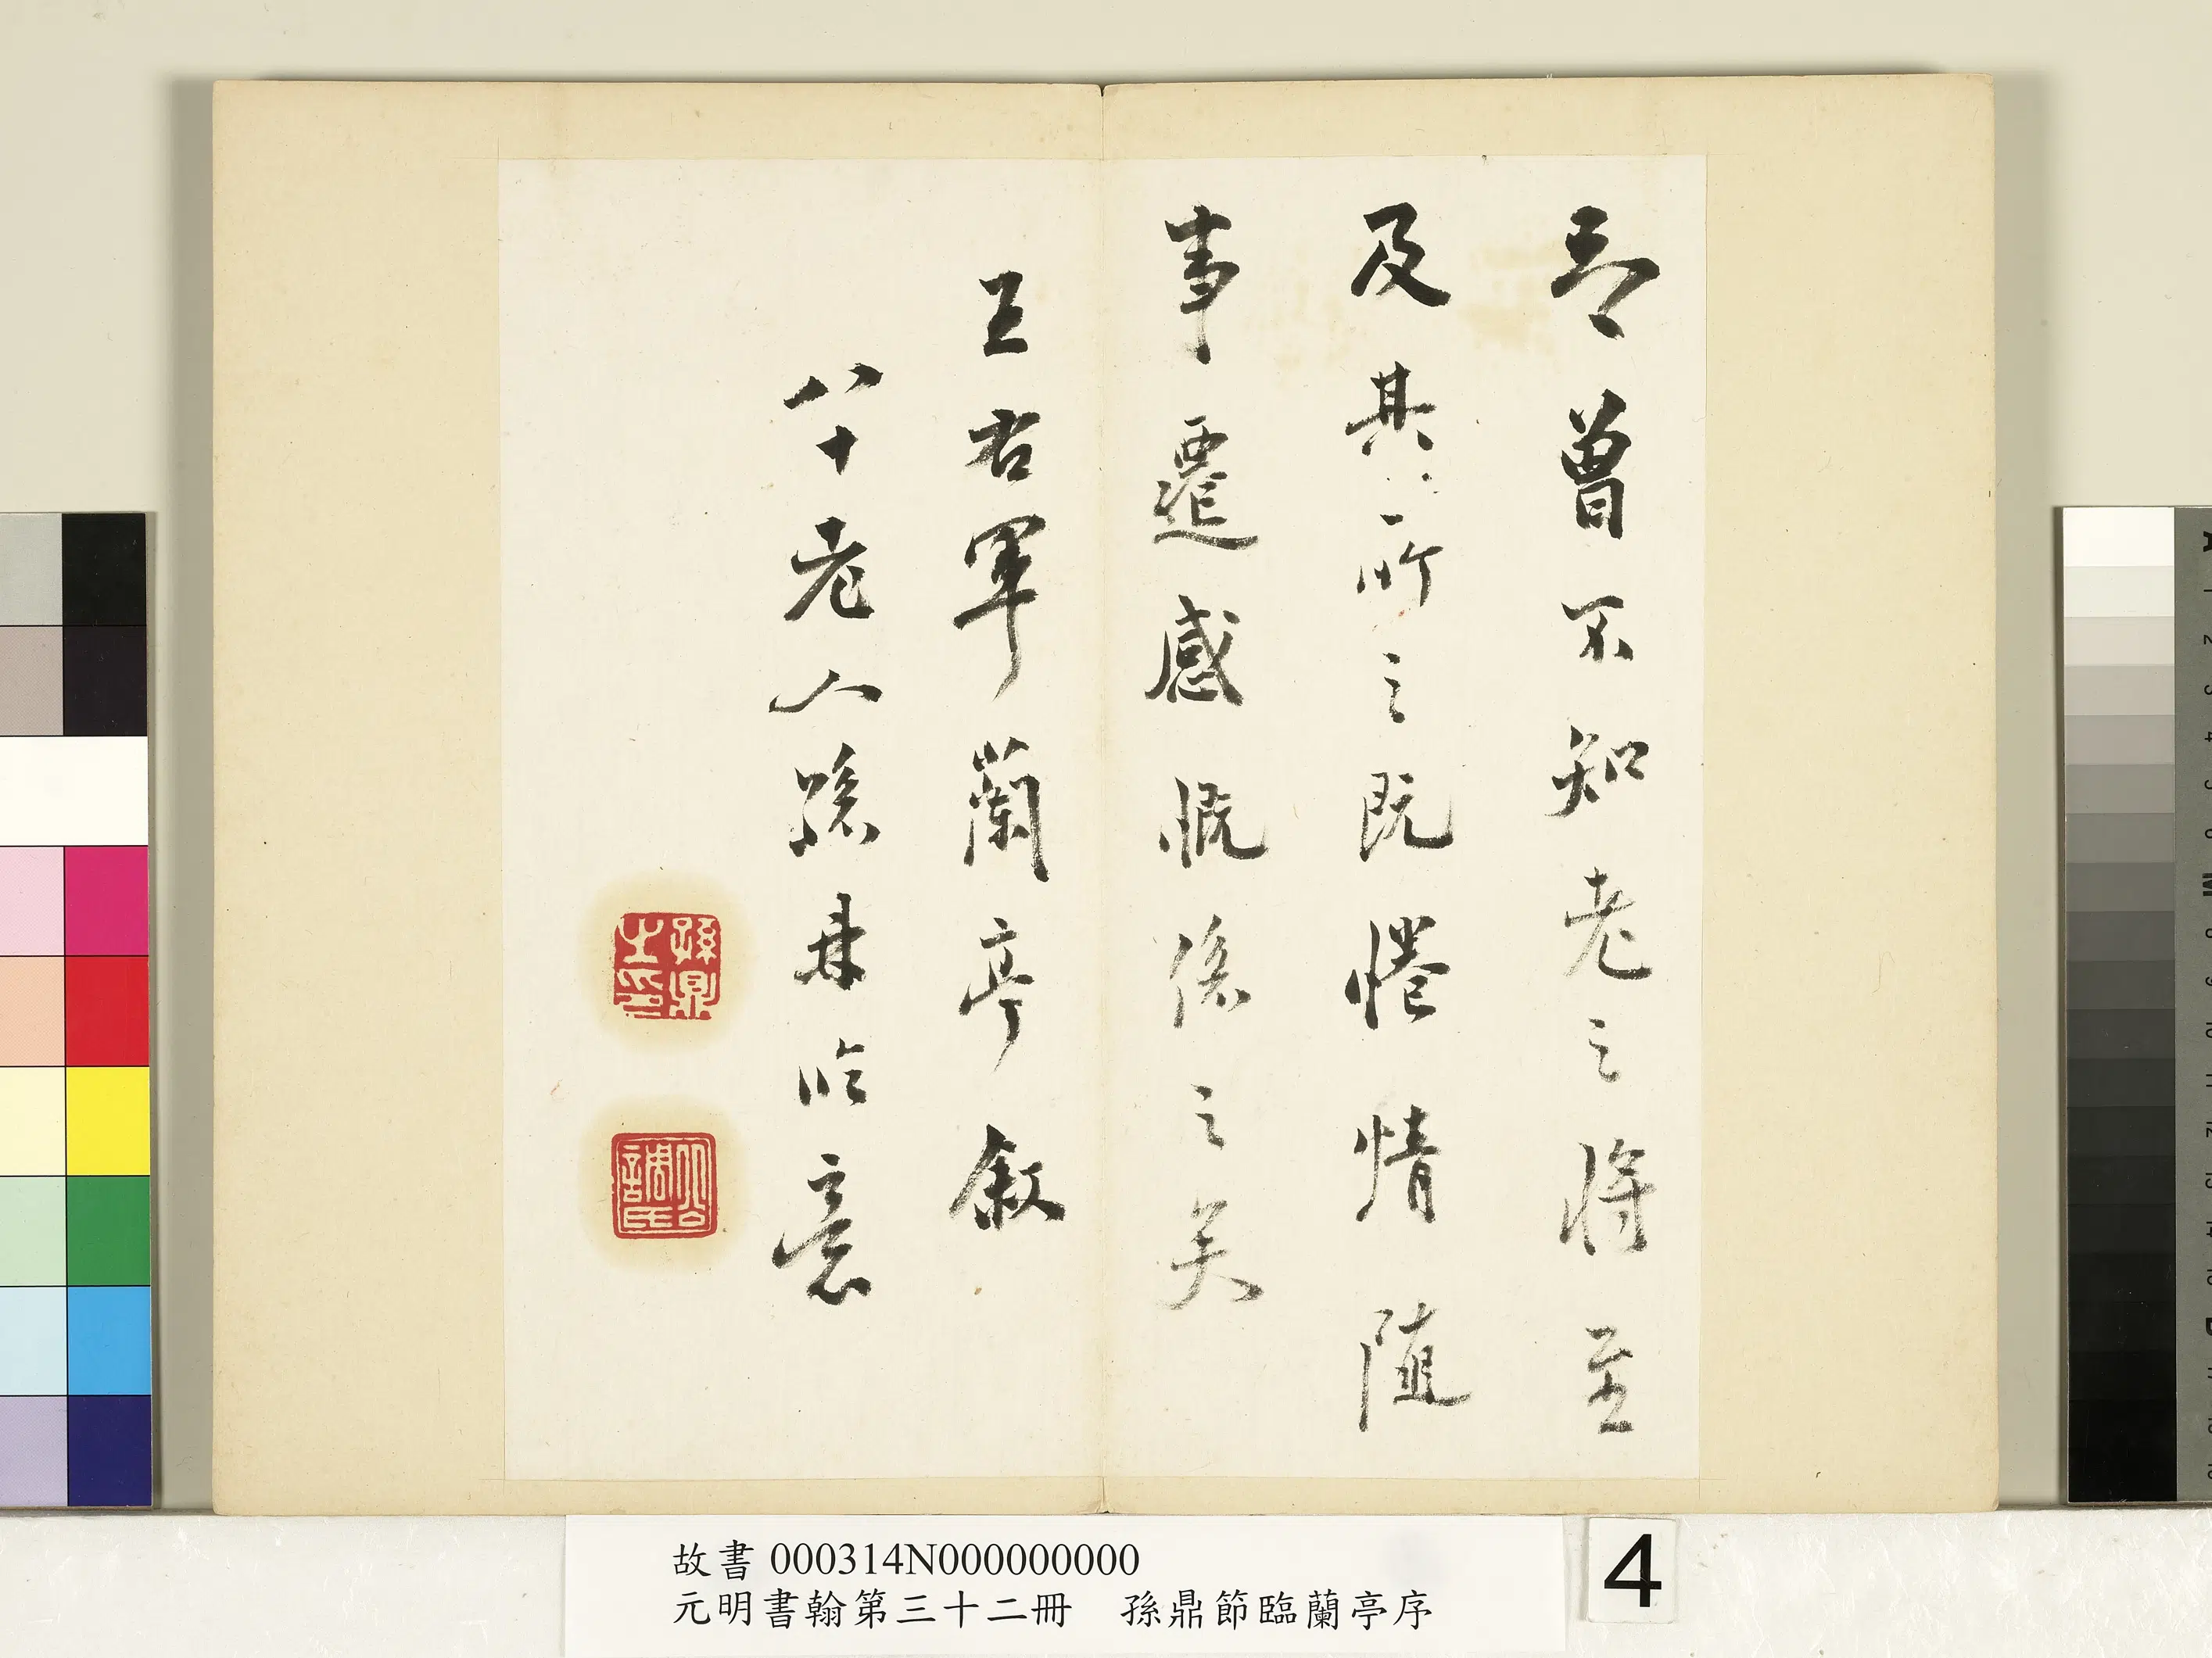 言曾不知老之將至
及其所之既惓情隨
事遷感慨係之矣
王右軍蘭亭敘
八十老人孫鼎臨意
孫鼎之印
調氏
故書 000314N000000000
元明書翰第三十二冊　孫鼎節臨蘭亭序
4